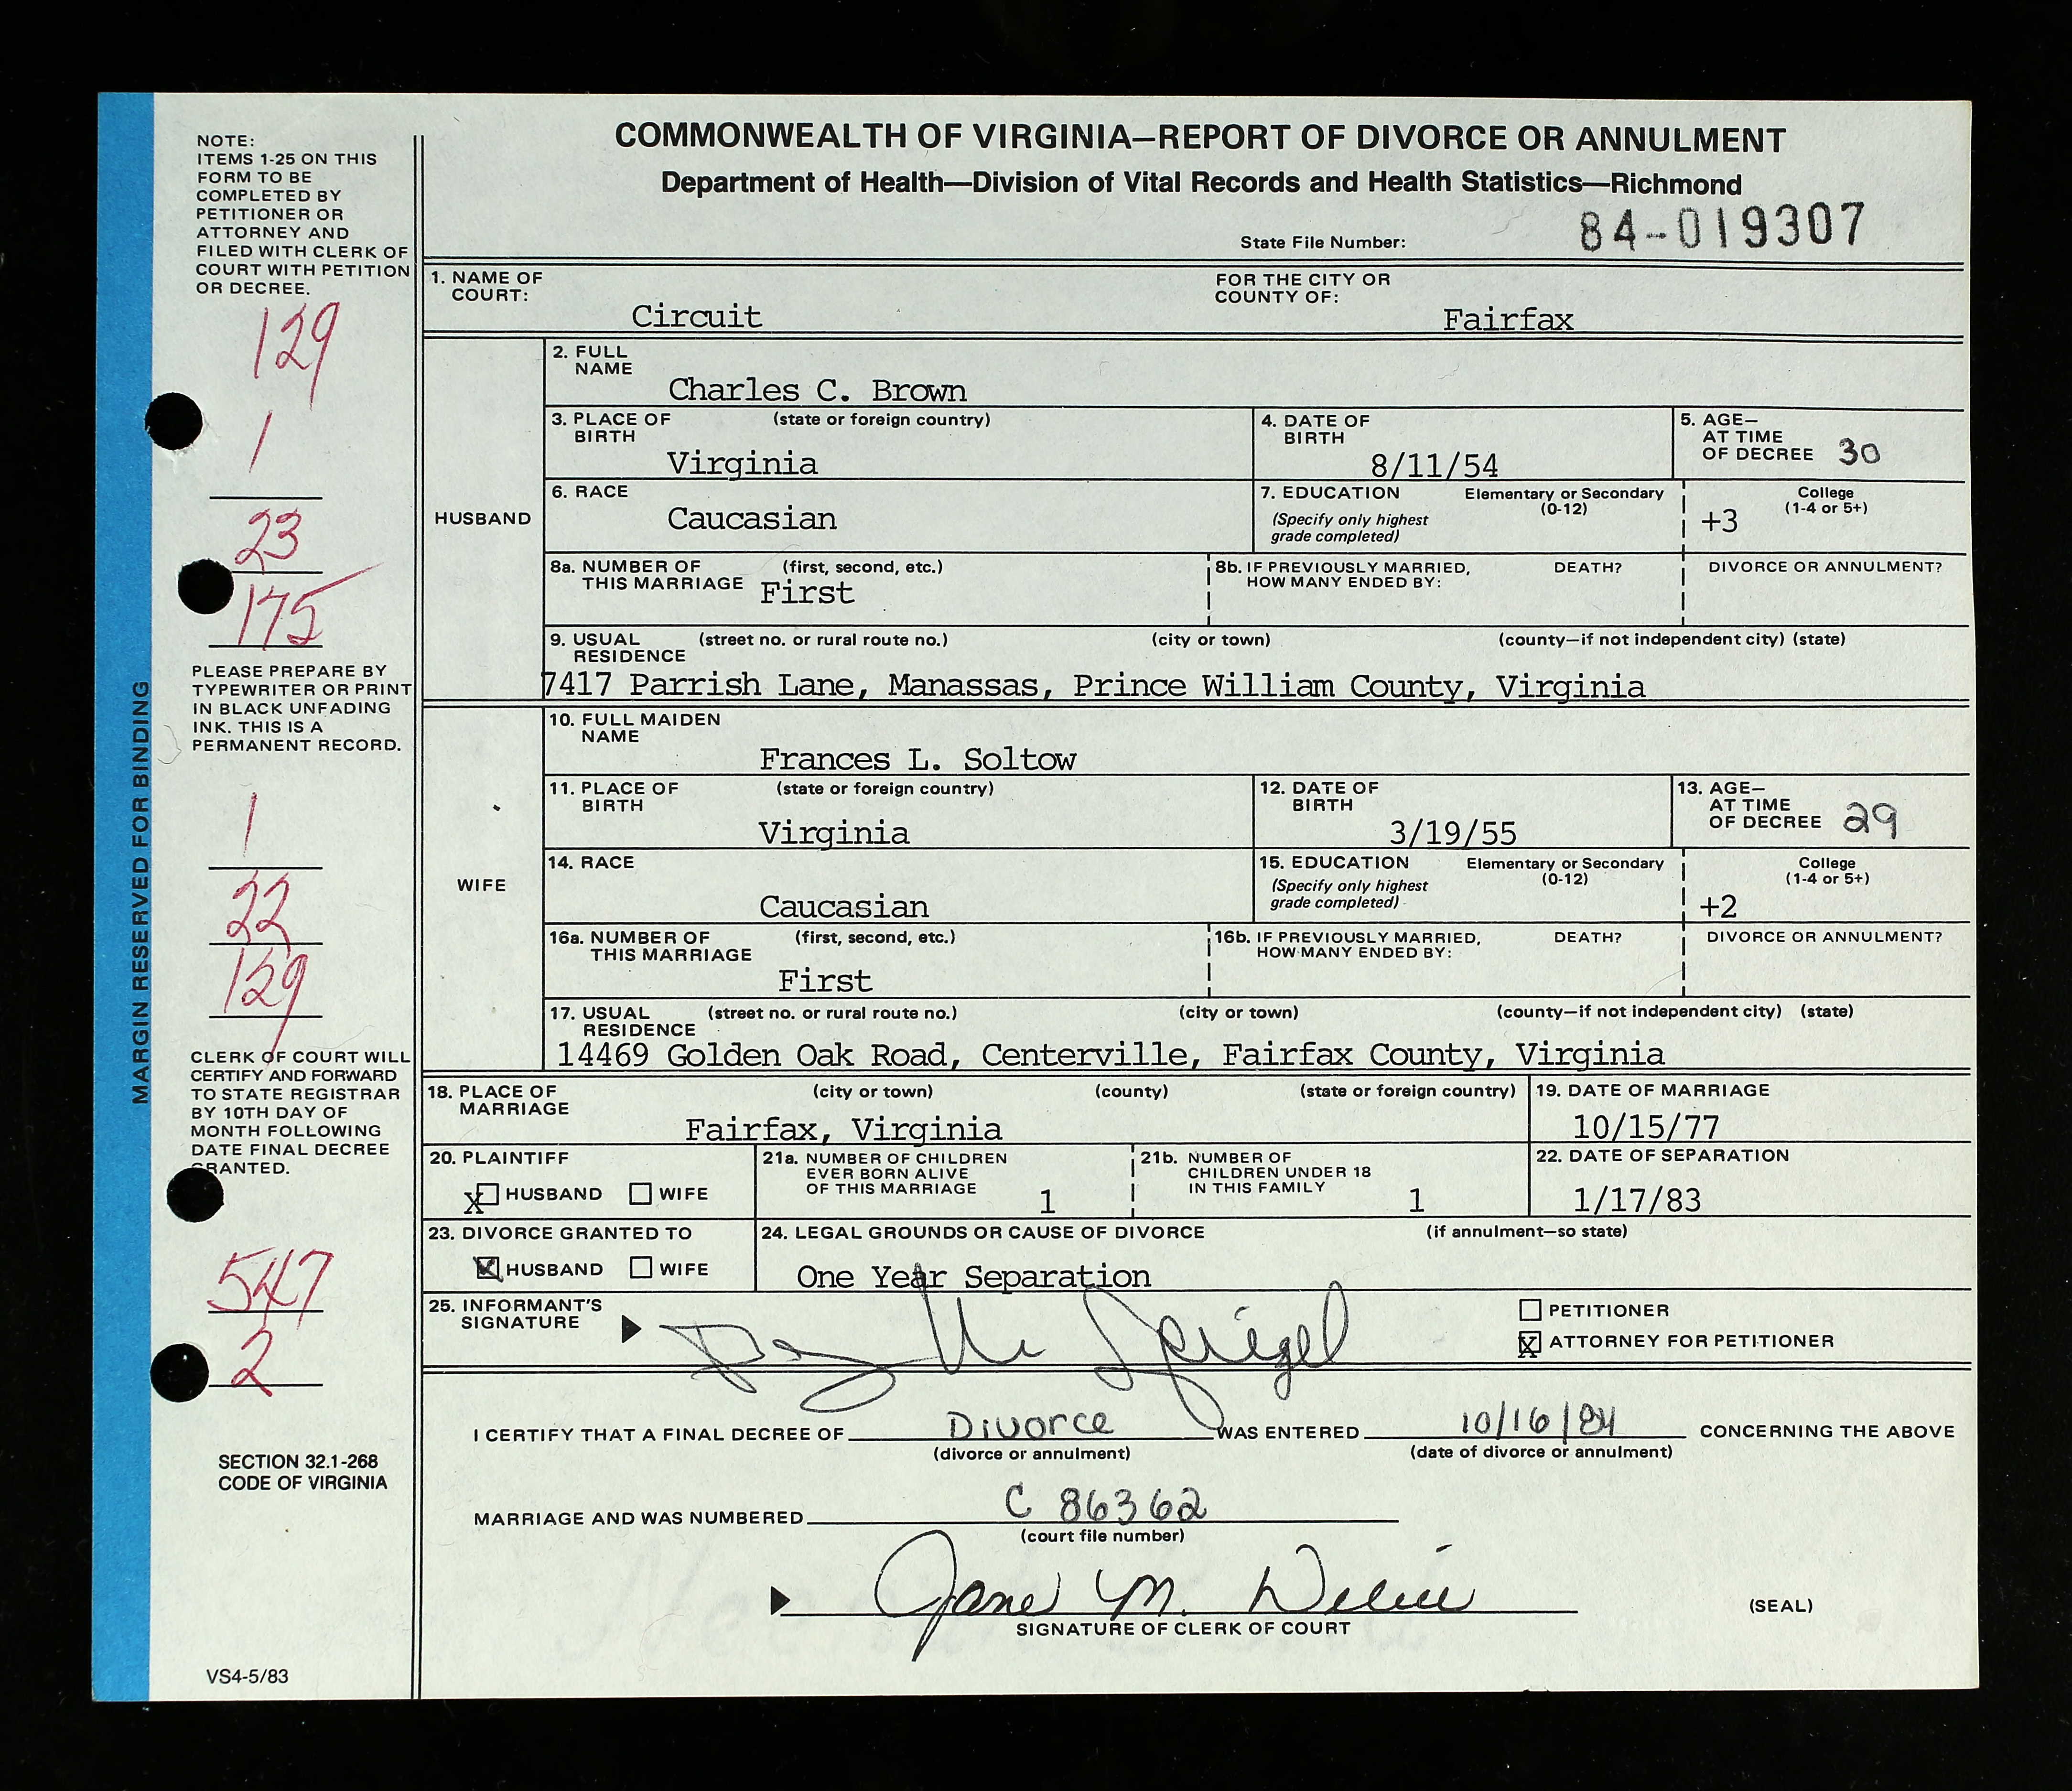 COMMONWEALTH OF VIRGINIA—REPORT OF DIVORCE OR ANNULMENT
Department of Health—Division of Vital Records and Health Statistics—Richmond
State File Number: 84-019307
NOTE:
ITEMS 1-25 ON THIS
FORM TO BE
COMPLETED BY
PETITIONER OR
ATTORNEY AND
FILED WITH CLERK OF
COURT WITH PETITION
OR DECREE.
129
1
23
175
PLEASE PREPARE BY
TYPEWRITER OR PRINT
IN BLACK UNFADING
INK. THIS IS A
PERMANENT RECORD.
1
22
129
CLERK OF COURT WILL
CERTIFY AND FORWARD
TO STATE REGISTRAR
BY 10TH DAY OF
MONTH FOLLOWING
DATE FINAL DECREE
GRANTED.
547
2
SECTION 32.1-268
CODE OF VIRGINIA
VS4-5/83
MARGIN RESERVED FOR BINDING
1. NAME OF COURT: Circuit
FOR THE CITY OR COUNTY OF: Fairfax
HUSBAND
2. FULL NAME
Charles C. Brown
3. PLACE OF BIRTH (state or foreign country)
Virginia
4. DATE OF BIRTH
8/11/54
5. AGE— AT TIME OF DECREE 30
6. RACE
Caucasian
7. EDUCATION Elementary or Secondary (0-12) College (1-4 or 5+)
(Specify only highest grade completed)
+3
8a. NUMBER OF THIS MARRIAGE (first, second, etc.)
First
8b. IF PREVIOUSLY MARRIED, HOW MANY ENDED BY: DEATH? DIVORCE OR ANNULMENT?
9. USUAL RESIDENCE (street no. or rural route no.) (city or town) (county—if not independent city) (state)
7417 Parrish Lane, Manassas, Prince William County, Virginia
WIFE
10. FULL MAIDEN NAME
Frances L. Soltow
11. PLACE OF BIRTH (state or foreign country)
Virginia
12. DATE OF BIRTH
3/19/55
13. AGE— AT TIME OF DECREE 29
14. RACE
Caucasian
15. EDUCATION Elementary or Secondary (0-12) College (1-4 or 5+)
(Specify only highest grade completed)
+2
16a. NUMBER OF THIS MARRIAGE (first, second, etc.)
First
16b. IF PREVIOUSLY MARRIED, HOW MANY ENDED BY: DEATH? DIVORCE OR ANNULMENT?
17. USUAL RESIDENCE (street no. or rural route no.) (city or town) (county—if not independent city) (state)
14469 Golden Oak Road, Centerville, Fairfax County, Virginia
18. PLACE OF MARRIAGE (city or town) (county) (state or foreign country)
Fairfax, Virginia
19. DATE OF MARRIAGE
10/15/77
20. PLAINTIFF
X HUSBAND WIFE
21a. NUMBER OF CHILDREN EVER BORN ALIVE OF THIS MARRIAGE 1
21b. NUMBER OF CHILDREN UNDER 18 IN THIS FAMILY 1
22. DATE OF SEPARATION
1/17/83
23. DIVORCE GRANTED TO
X HUSBAND WIFE
24. LEGAL GROUNDS OR CAUSE OF DIVORCE (if annulment—so state)
One Year Separation
25. INFORMANT'S SIGNATURE
Spiegel
PETITIONER
X ATTORNEY FOR PETITIONER
I CERTIFY THAT A FINAL DECREE OF Divorce WAS ENTERED 10/16/84 CONCERNING THE ABOVE
(divorce or annulment) (date of divorce or annulment)
MARRIAGE AND WAS NUMBERED C 86362
(court file number)
Jane M.
SIGNATURE OF CLERK OF COURT
(SEAL)